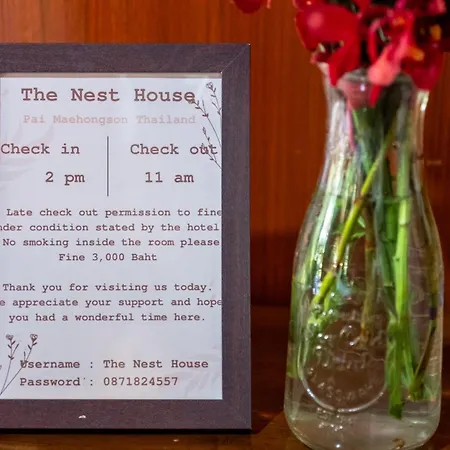 The Nest House
Pai Maehongson Thailand
Check in
Check out
2 pm
11 am
Late check out permission to fine
nder condition stated by the hotel
No smoking inside the room please
Fine 3,000 Baht
Thank you for visiting us today.
e appreciate your support and hope
you had a wonderful time here.
Username : The Nest House
Password : 0871824557